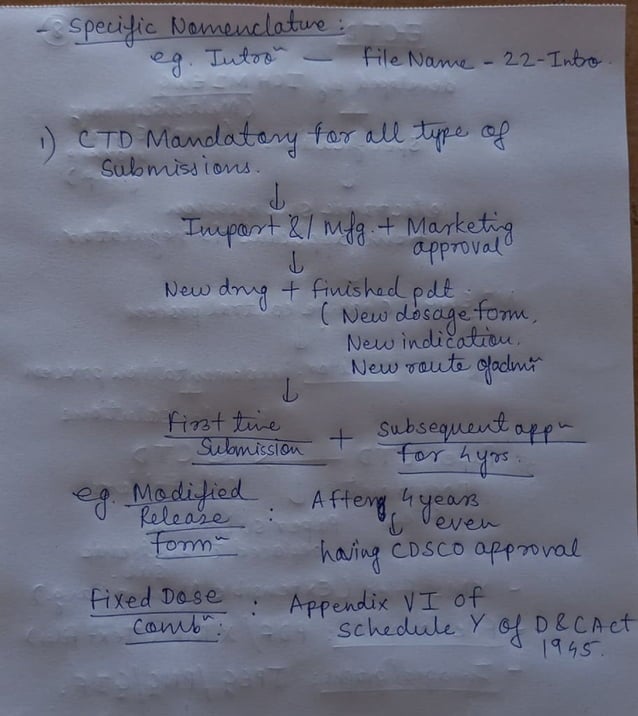 - Specific Nomenclature :
eg. Introⁿ — File Name - 22-Intro.
1) CTD Mandatory for all type of
Submissions.
↓
Import &/ Mfg. + Marketing
approval
↓
New drug + finished pdt.
( New dosage form,
New indication,
New route of admⁿ
↓
First time
Submission + Subsequent appⁿ
for 4 yrs.
eg. Modified : After 4 years
Release ↓ even
formⁿ having CDSCO approval
Fixed Dose : Appendix VI of
Combⁿ: Schedule Y of D & C Act
1945.